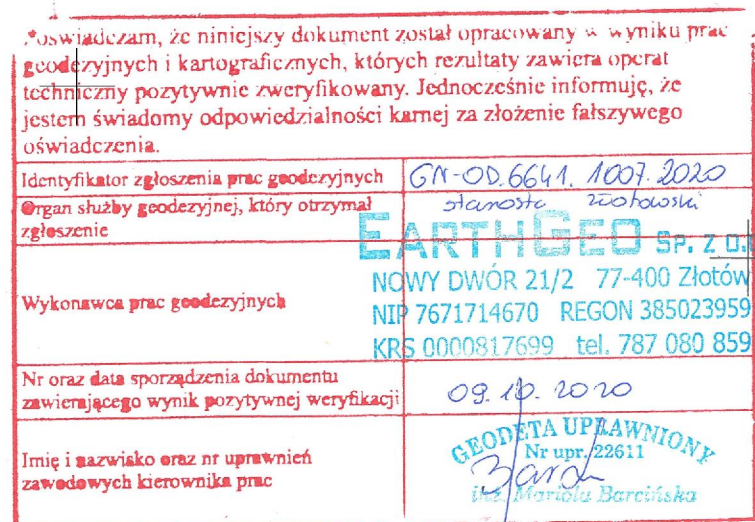 Poświadczam, że niniejszy dokument został opracowany w wyniku prac
geodezyjnych i kartograficznych, których rezultaty zawiera operat
techniczny pozytywnie zweryfikowany. Jednocześnie informuję, że
jestem świadomy odpowiedzialności karnej za złożenie fałszywego
oświadczenia.
Identyfikator zgłoszenia prac geodezyjnych GN-OD.6641.1007.2020
Organ służby geodezyjnej, który otrzymał
zgłoszenie
starosta złotowski
EARTHGEO SP. Z O.
Wykonawca prac geodezyjnych
NOWY DWÓR 21/2 77-400 Złotów
NIP 7671714670 REGON 385023959
KRS 0000817699 tel. 787 080 859
Nr oraz data sporządzenia dokumentu
zawierającego wynik pozytywnej weryfikacji
09.10.2020
Imię i nazwisko oraz nr uprawnień
zawodowych kierownika prac
GEODETA UPRAWNIONY
Nr upr. 22611
inż. Mariola Barcińska